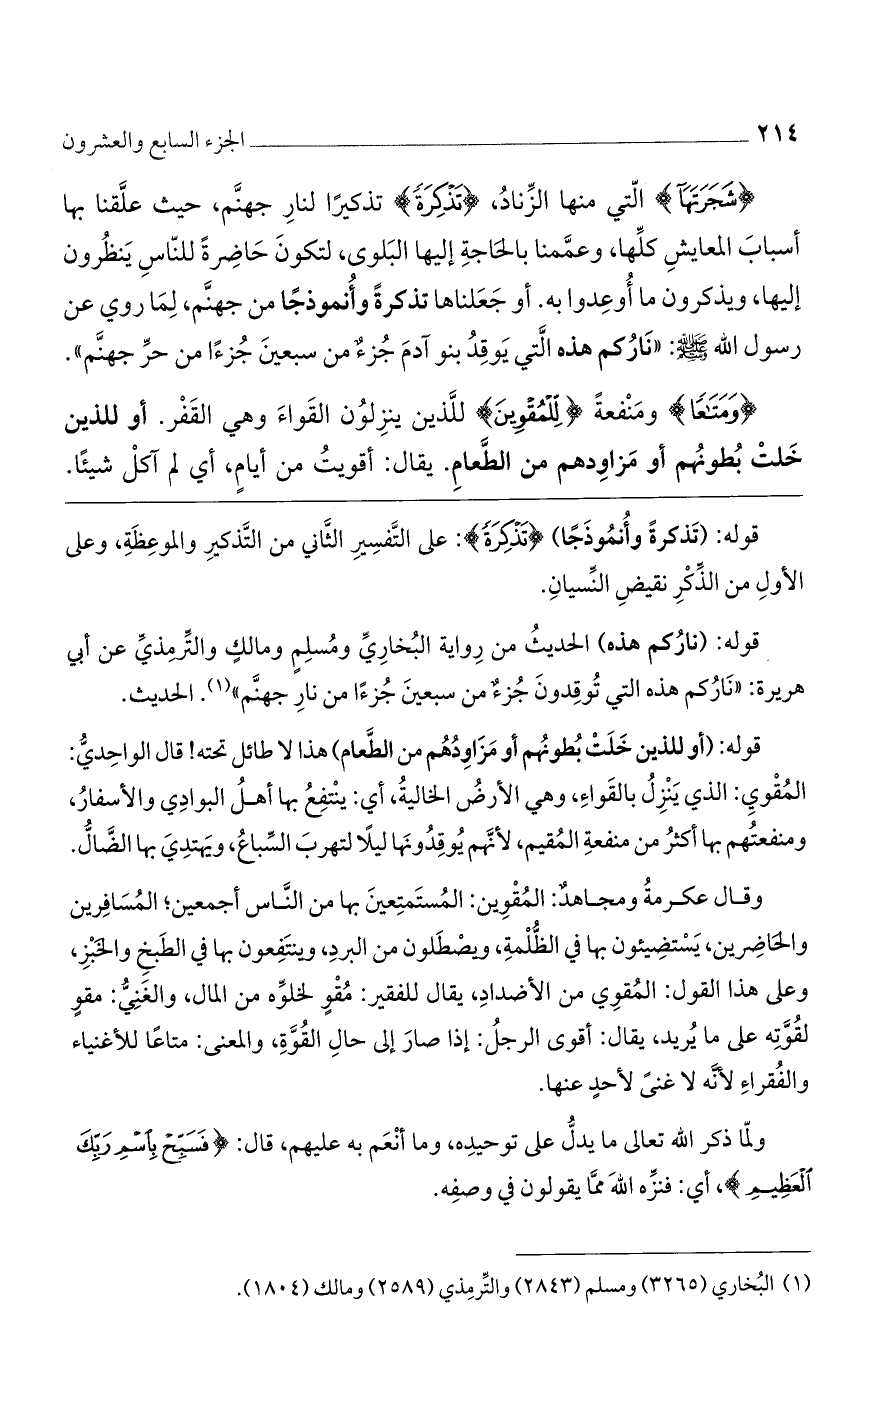 ٢١٤ ــــــــــــــــــــ الجزء السابع والعشرون
﴿شَجَرَتَهَآ﴾ الّتي منها الزِّنادُ، ﴿تَذْكِرَةً﴾ تذكيرًا لنارِ جهنَّم، حيث علَّقنا بها
أسبابَ المعايشِ كلِّها، وعمَّمنا بالحَاجةِ إليها البَلوى، لتكونَ حَاضِرةً للنّاسِ يَنظُرون
إليها، ويذكرون ما أُوعِدوا به. أو جَعَلناها تذكرةً وأُنموذجًا من جهنَّم، لِمَا روي عن
رسول الله ﷺ: «نَارُكم هذه الَّتي يَوقِدُ بنو آدمَ جُزءٌ من سبعينَ جُزءًا من حرِّ جهنَّم».
﴿وَمَتَٰعًا﴾ ومَنْفعةً ﴿لِّلْمُقْوِينَ﴾ للَّذين ينزِلوُن القَواءَ وهي القَفْر. أو للذين
خَلتْ بُطونُهم أو مَزاوِدهم من الطَّعامِ. يقال: أقويتُ من أيامٍ، أي لم آكلْ شيئًا.
قوله: (تَذكرةً وأُنمُوذَجًا) ﴿تَذْكِرَةً﴾: على التَّفسِيرِ الثَّاني من التَّذكيرِ والموعِظَةِ، وعلى
الأولِ من الذِّكْرِ نقيضِ النِّسيانِ.
قوله: (نارُكم هذه) الحديثُ من رِواية البُخاريِّ ومُسلمٍ ومالكٍ والتِّرمِذيِّ عن أبي
هريرة: «نَارُكم هذه التي تُوقِدونَ جُزءٌ من سبعينَ جُزءًا من نارِ جهنَّم»(١). الحديث.
قوله: (أو للذين خَلَتْ بُطونُهم أو مَزَاوِدُهُم من الطَّعام) هذا لا طائل تحته! قال الواحِديُّ:
المُقْوي: الذي يَنْزِلُ بالقَواءِ، وهي الأرضُ الخاليةُ، أي: ينْتفِعُ بها أهلُ البوادِي والأسفارُ،
ومنفعتُهم بها أكثرُ من منفعةِ المُقيم، لأنَّهم يُوقِدُونَها ليلًا لتهربَ السِّباعُ، ويَهتدِيَ بها الضَّالُّ.
وقال عكرمةُ ومجاهدٌ: المُقْوِين: المُستَمتِعينَ بها من النَّاس أجمعين؛ المُسَافِرين
والحَاضِرين، يَسْتضِيئون بها في الظُّلْمةِ، ويصْطَلون من البردِ، وينتَفِعون بها في الطَبخِ والخَبْزِ،
وعلى هذا القول: المُقوِي من الأضدادِ، يقال للفقير: مُقْوٍ لخلوِّه من المال، والغَنِيُّ: مقوٍ
لقُوَّتِه على ما يُريد، يقال: أقوى الرجلُ: إذا صارَ إلى حالِ القُوَّةِ، والمعنى: متاعًا للأغنياء
والفُقراءِ لأنَّه لا غنىً لأحدٍ عنها.
ولمّا ذكر الله تعالى ما يدلُّ على توحيدِه، وما أنْعَم به عليهم، قال: ﴿فَسَبِّحْ بِٱسْمِ رَبِّكَ
ٱلْعَظِيمِ﴾، أي: فنزِّه اللهَ ممَّا يقولون في وصفِه.
(١) البُخاري (٣٢٦٥) ومسلم (٢٨٤٣) والتِّرمِذي (٢٥٨٩) ومالك (١٨٠٤).